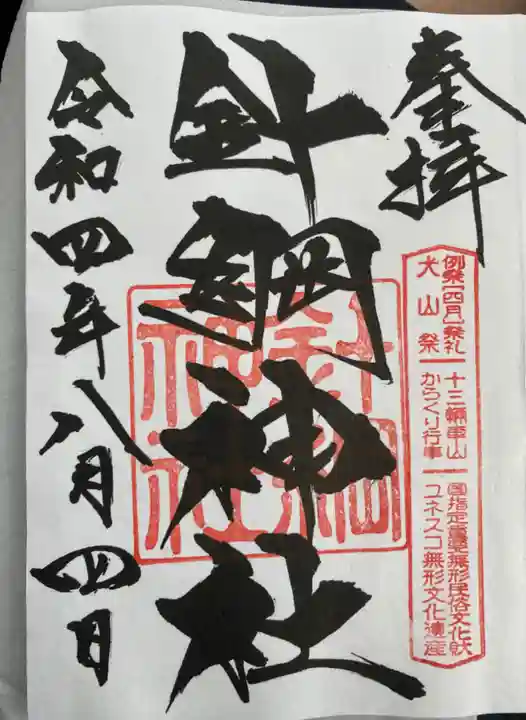 奉拝
例祭「四月」祭礼
犬山祭
十三輛車山
からくり行事
国指定重要無形民俗文化財
ユネスコ無形文化遺産
針綱神社
針綱神社
令和四年八月四日